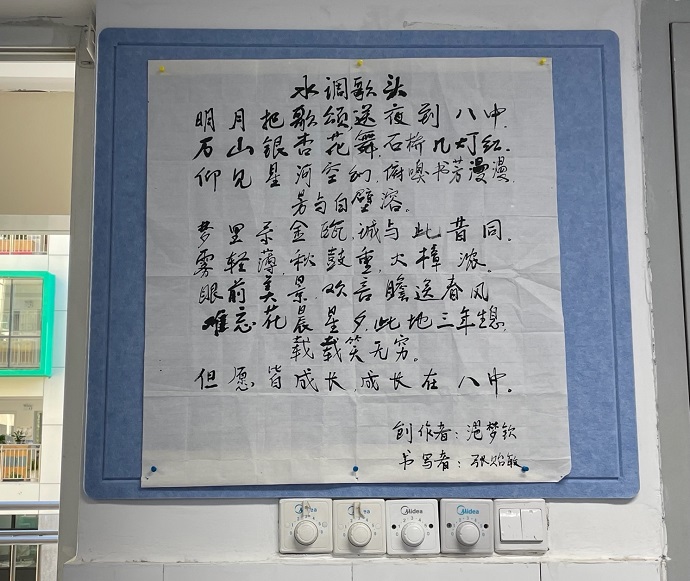 水调歌头
明月把歌颂送夜到八中.
万山银杏花舞,石桥几灯红.
仰见星河空幻,俯嗅书芳漫漫,
与白壁溶。
梦里示金瓯,诚与此昔同.
雾轻薄,秋鼓重,火樟浓.
眼前美景,欢喜瞻送春风
难忘花晨星夕,此地三年憩,
载载笑无穷。
但愿皆成长,成长在八中。
创作者:梦钦
书写者:张贻敏
Midea
Midea
Midea
Midea